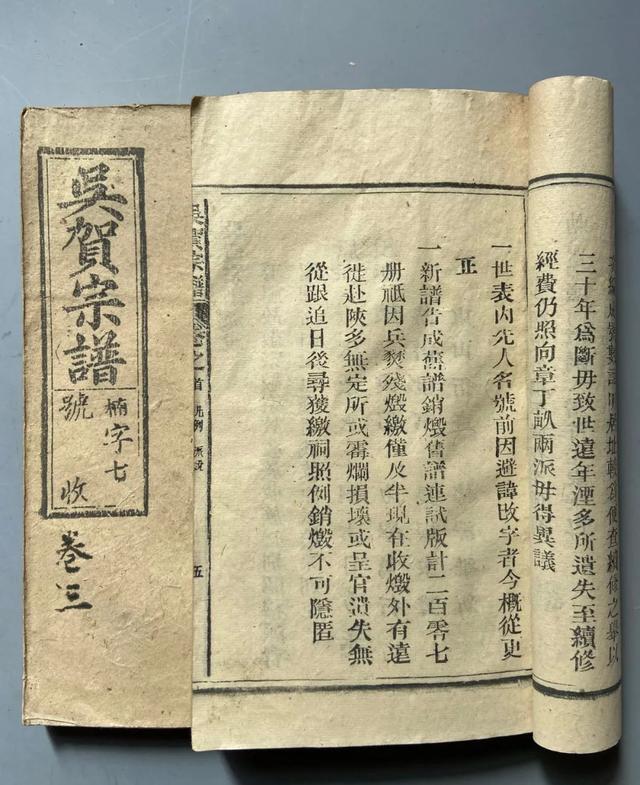 便查續修之舉以
三十年爲斷毋致世遠年湮多所遺失至續修
經費仍照向章丁畝兩派毋得異議
一世表內先人名號前因避諱改字者今概從更
正
一新譜告成舊譜銷燬舊譜連試版計二百零七
册祗因兵燹殘燬繳僅及半現在收燬外有遠
徙赴陝多無定所或霉爛損壞或呈官遺失無
從跟追日後尋獲繳祠照例銷燬不可隱匿
吳賀宗譜 卷之首 凡例 五
吳賀宗譜
楠字七
號 收
卷三